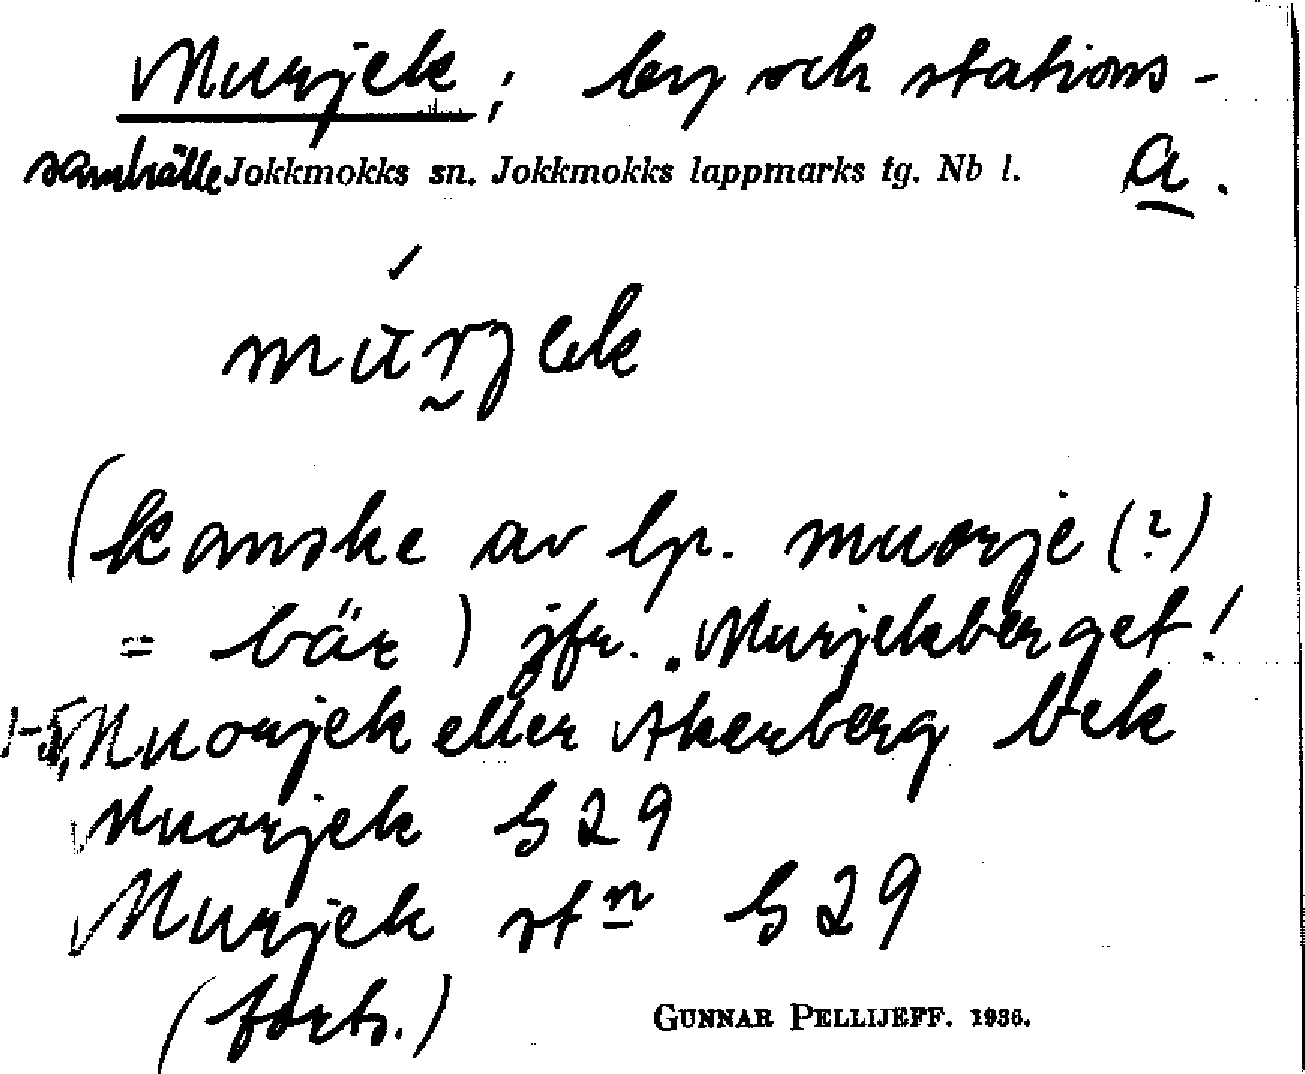 Murjek, by och stations-
samhälle Jokkmokks sn. Jokkmokks lappmarks tg. Nb l. a.
mu̇rjek
(kanske av lp. muorje (?)
= bär) jfr. Murjekberget!
1-5, Muorjek eller Akerberg bek
Muorjek G 29
Murjek stn G 29
(forts.)
GUNNAR PELLIJEFF. 1936.